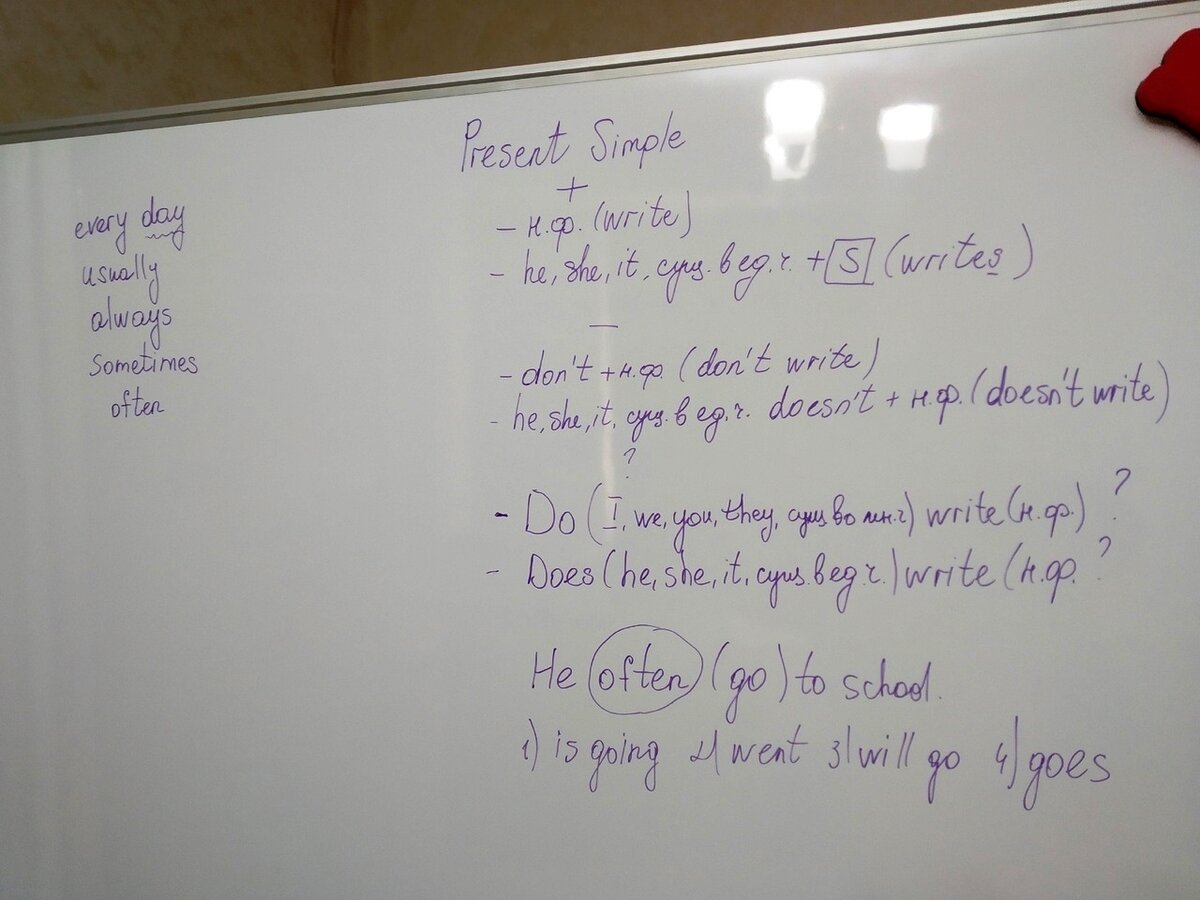 every day
usually
always
Sometimes
often
Present Simple
+
- н.ф. (write)
- he, she, it, сущ. в ед. ч. + S (writes)
—
- don't + н.ф. (don't write)
- he, she, it, сущ. в ед. ч. doesn't + н.ф. (doesn't write)
?
- Do (I, we, you, they, сущ во мн.ч) write (н.ф.) ?
- Does (he, she, it, сущ. в ед ч.) write (н.ф. ?
He often (go) to school.
1) is going 2) went 3) will go 4) goes